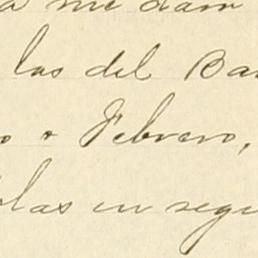 a me dam
las del Ba
o o Febrero,
las en segu